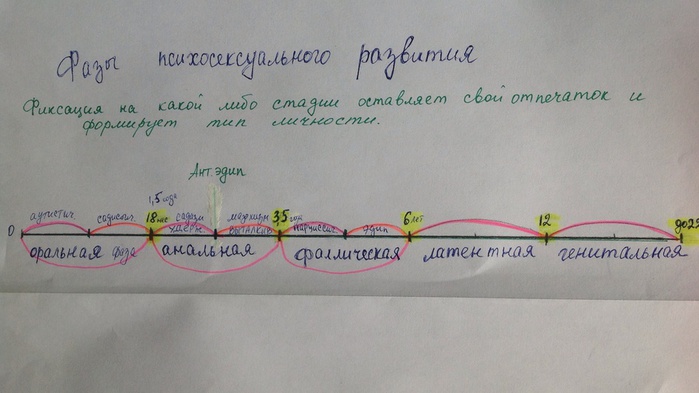 Фазы психосексуального развития
Фиксация на какой либо стадии оставляет свой отпечаток и
формирует тип личности.
Ант.эдип
1,5 года
0 аутистич. садистич. 18мес садизм мазохизм 3,5 год нарциссич. эдип 6 лет 12 до 25
выталкив
оральная фаза анальная фаллическая латентная генитальная